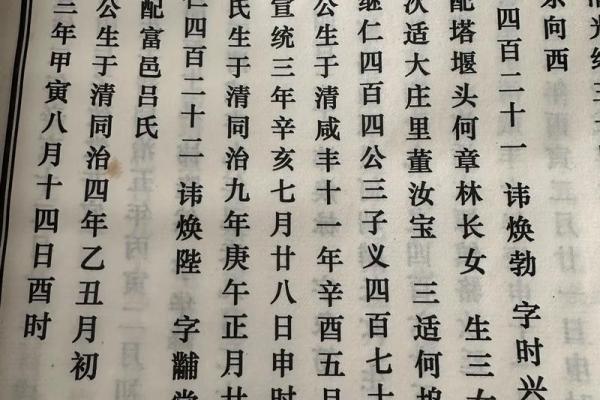 光绪三
东向西
四百二十一 讳焕勃 字时兴
配塔堰头何章林长女 生三女
次适大庄里董汝宝 三适何坞
继仁四百四公三子义四百七十
公生于清咸丰十一年辛酉五月
宣统三年辛亥七月廿八日申时
氏生于清同治九年庚午正月廿
仁四百二十二 讳焕陛 字黼堂
配富邑吕氏
公生于清同治四年乙丑月初
三年甲寅八月十四日酉时